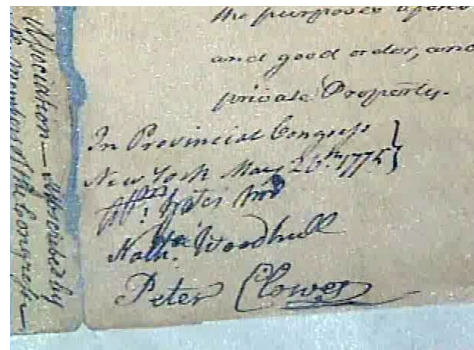 the purposes
and good order, and
private Property.
In Provincial Congress
New York May 26th 1775
Nathl. Woodhull
Peter Clowes
Association — Associated by
the Members of the Congress